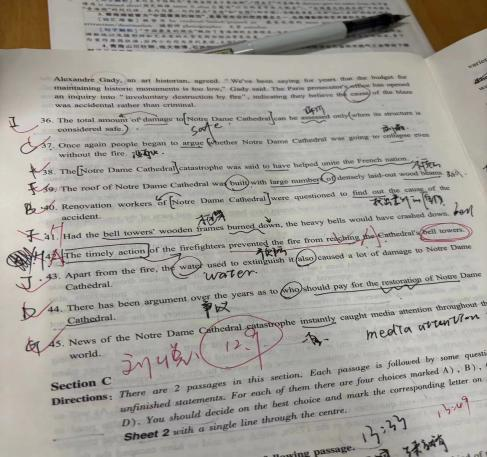 Alexandre Gady, an art historian, agreed. "We've been saying for years that the budget for
maintaining historic monuments is too low," Gady said. The Paris prosecutor's office has opened
an inquiry into "involuntary destruction by fire", indicating they believe the cause of the blaze
was accidental rather than criminal.
I 36. The total amount of damage to [Notre Dame Cathedral] can be assessed only when its structure is
considered safe.
safe
37. Once again people began to argue whether Notre Dame Cathedral was going to collapse even
without the fire.
38. The [Notre Dame Cathedral] catastrophe was said to have helped unite the French nation.
39. The roof of Notre Dame Cathedral was built with large numbers of densely laid-out wood beams.
B 40. Renovation workers of [Notre Dame Cathedral] were questioned to find out the cause of the
accident.
41. Had the bell towers' wooden frames burned down, the heavy bells would have crashed down. bell
The timely action of the firefighters prevented the fire from reaching the Cathedral's bell towers.
J 43. Apart from the fire, the water used to extinguish it also caused a lot of damage to Notre Dame
Cathedral. water
D 44. There has been argument over the years as to who should pay for the restoration of Notre Dame
Cathedral. 争议
G 45. News of the Notre Dame Cathedral catastrophe instantly caught media attention throughout the
world. media attention
12.9
Section C
Directions: There are 2 passages in this section. Each passage is followed by some questi
unfinished statements. For each of them there are four choices marked A), B),
D). You should decide on the best choice and mark the corresponding letter on
Sheet 2 with a single line through the centre.
13:33
following passage.